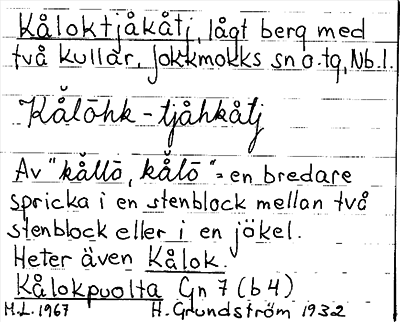 Kåloktjåkåtj, lågt berg med
två kullar, Jokkmokks sn o. tg, Nb. l.
Kålōhk - tjåhkåtj
Av "kållō, kålō" = en bredare
spricka i en stenblock mellan två
stenblock eller i en jökel.
Heter även Kålok.
Kålokpuolta Gn 7 (b 4)
M.L. 1967 H. Grundström 1932